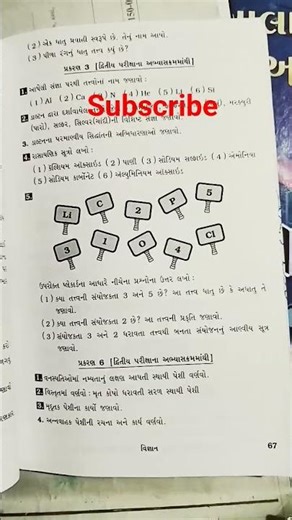 (2) એક ધાતુ પ્રવાહી સ્વરૂપે છે. તેનું નામ આપો.
(3) પીળા રંગનું ધાતુ તત્ત્વ કયું છે?
પ્રકરણ 3 [દ્વિતીય પરીક્ષાના અભ્યાસક્રમમાંથી]
1. આપેલી સંજ્ઞા પરથી તત્ત્વોનાં નામ જણાવો :
(1) Al (2) Ca (3) N (4) He (5) Li (6) Si
2. ડાલ્ટન દ્વારા
Subscribe
મરક્યુરી
(પારો), સલ્ફર, સિલ્વર(ચાંદી)ની
3. ડાલ્ટનના પરમાણ્વીય સિદ્ધાંતની અભિધારણાઓ જણાવો.
4. રાસાયણિક સૂત્રો લખો :
(1) કૅલ્શિયમ ઑક્સાઇડ (2) પાણી (3) સોડિયમ સલ્ફાઇડ (4) એમોનિયા
(5) સોડિયમ કાર્બોનેટ (6) ઍલ્યુમિનિયમ ઑક્સાઇડ
5.
Li C 2 P 5
3 1 O 4 Cl
ઉપરોક્ત પ્લેકાર્ડના આધારે નીચેના પ્રશ્નોના ઉત્તર લખો :
(1) કયા તત્ત્વની સંયોજકતા 3 અને 5 છે? આ તત્ત્વ ધાતુ છે કે અધાતુ તે
જણાવો.
(2) કયા તત્ત્વની સંયોજકતા 2 છે? આ તત્ત્વની પ્રકૃતિ જણાવો.
(3) સંયોજકતા 3 અને 2 ધરાવતા તત્ત્વથી બનતા સંયોજનનું આણ્વીય સૂત્ર
જણાવો.
પ્રકરણ 6 [દ્વિતીય પરીક્ષાના અભ્યાસક્રમમાંથી]
1. વનસ્પતિઓમાં નમ્યતાનું લક્ષણ આપતી સ્થાયી પેશી વર્ણવો.
2. વિસ્તૃતમાં વર્ણવો : મૃત કોષો ધરાવતી સરળ સ્થાયી પેશી
3. મૃદુતક પેશીનાં કાર્યો જણાવો.
4. અન્નવાહક પેશીની રચના અને કાર્ય વર્ણવો.
વિજ્ઞાન
67